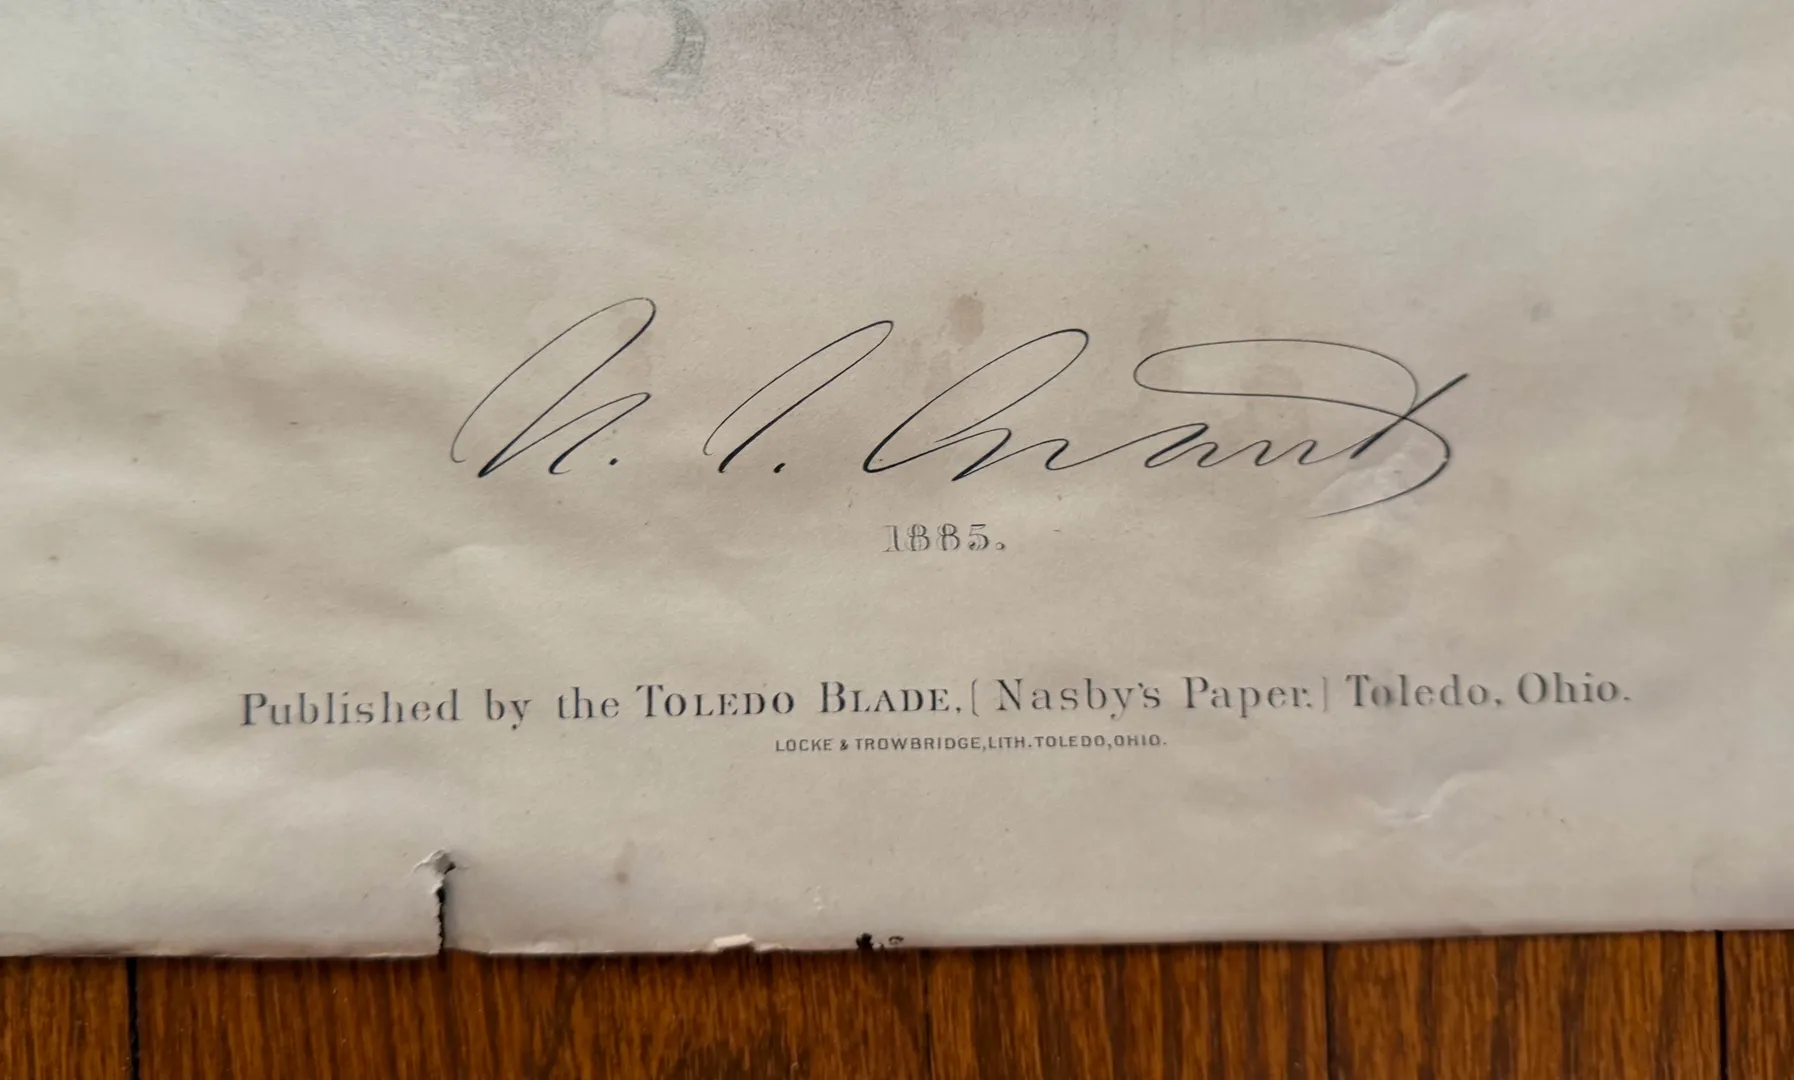 U. S. Grant
1885.
Published by the TOLEDO BLADE, [ Nasby's Paper. ] Toledo, Ohio.
LOCKE & TROWBRIDGE, LITH. TOLEDO, OHIO.